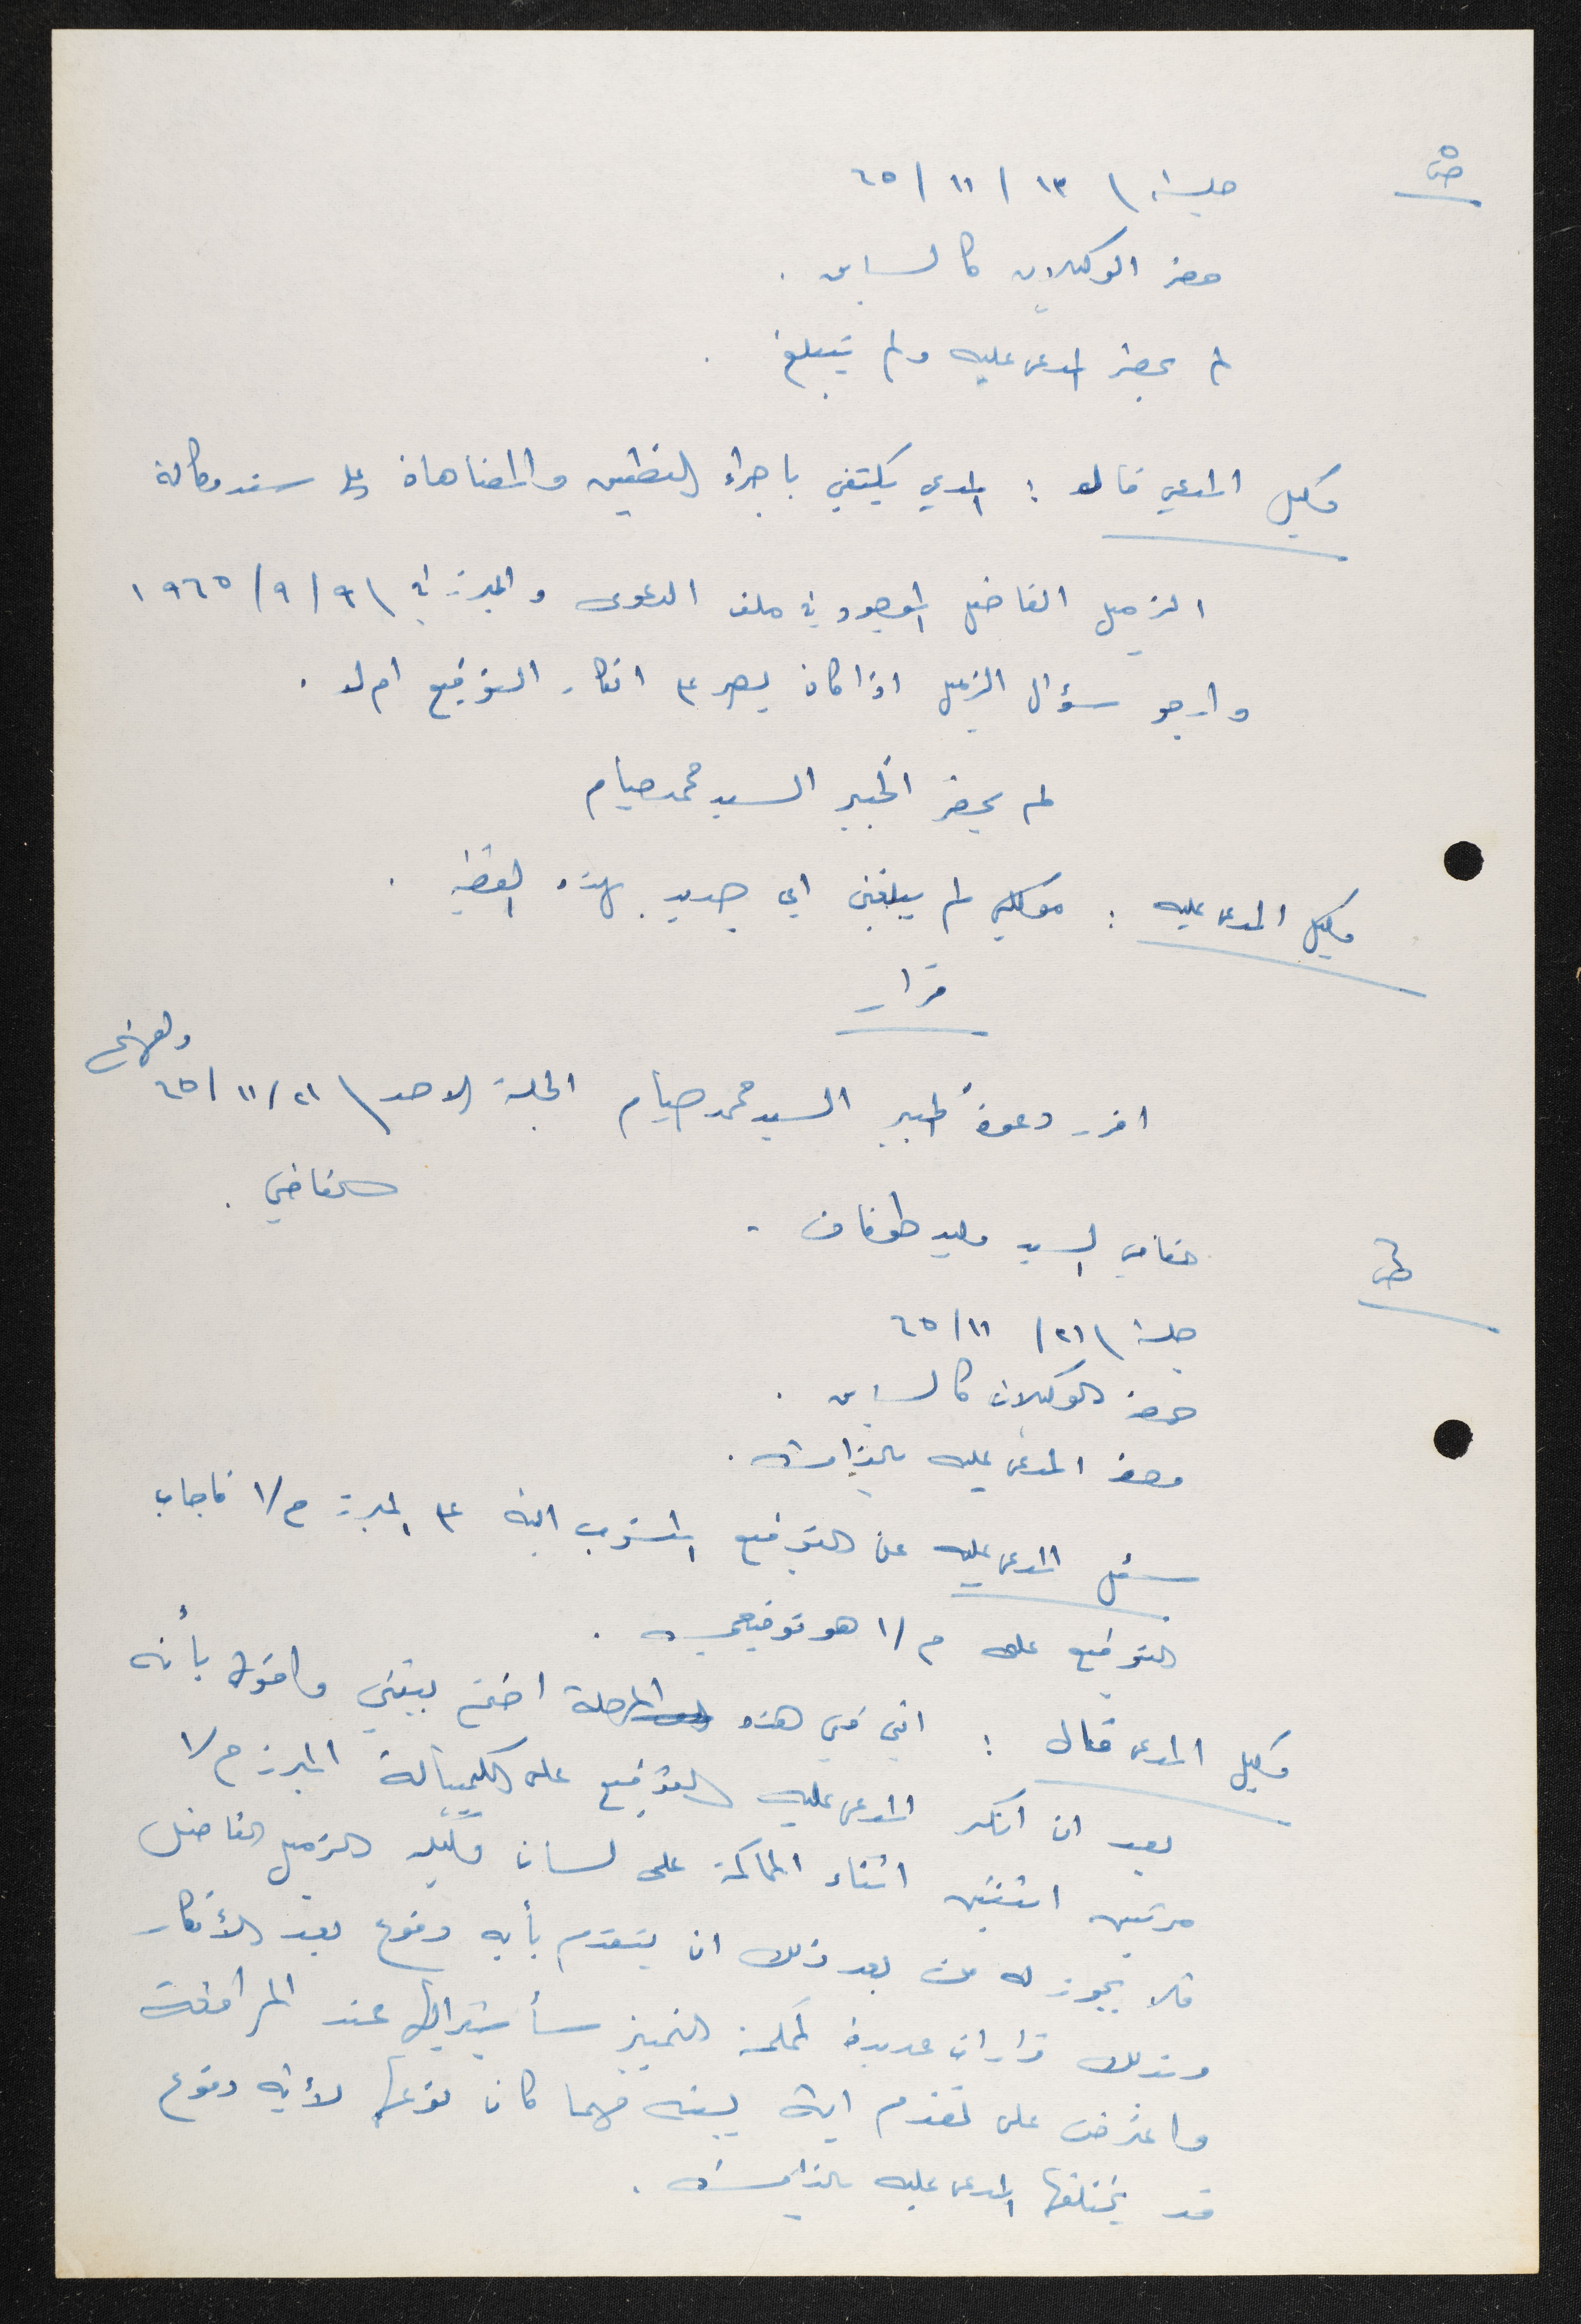 ص٥
جلسة \ ١٣ / ١١ / ٦٥
حضر الوكيلان كالسابق .
لم يحضر المدعى عليه ولم يتبلغ .
وكيل المدعي قال : المدعي يكتفي باجراء التطبيق والمضاهاة على سند وكالة
الزميل الفاضل الموجود في ملف الدعوى والمبرز في \ ٩ / ٩ / ١٩٦٥
وارجو سؤال الزميل اذا كان يصر على انكار التوقيع ام لا .
لم يحضر الخبير السيد محمد صيام
وكيل المدعى عليه : موكلي لم يبلغني اي جديد بهذه القضية .
قرار
اقرر دعوة الخبير السيد محمد صيام لجلسة الاحد \ ٢١ / ١١ / ٦٥
القاضي .
ص٦
القاضي السيد وليد طوقان -
جلسة \ ٢١ / ١١ / ٦٥
حضر الوكيلان كالسابق .
وحضر المدعى عليه بالذات .
سئل المدعى عليه عن التوقيع المنسوب اليه على المبرز م/١ فاجاب
التوقيع على م/١ هو توقيعي .
وكيل المدعي قال : انني في هذه المرحلة اختم بينتي واقول بأنه
بعد ان انكر المدعى عليه التوقيع على الكمبيالة المبرز م/١
مرتين اثنتين اثناء المحاكمة على لسان وكيله الزميل الفاضل
فلا يجوز له من بعد ذلك ان يتقدم بأية دفوع بعد الأنكار
وبذلك قرارات عديدة لمحكمة التمييز سأشير اليها عند المرافعة
واعترض على تقديم اية بينه مهما كان نوعها لأية دفوع
قد يختلقها المدعى عليه بالذات .